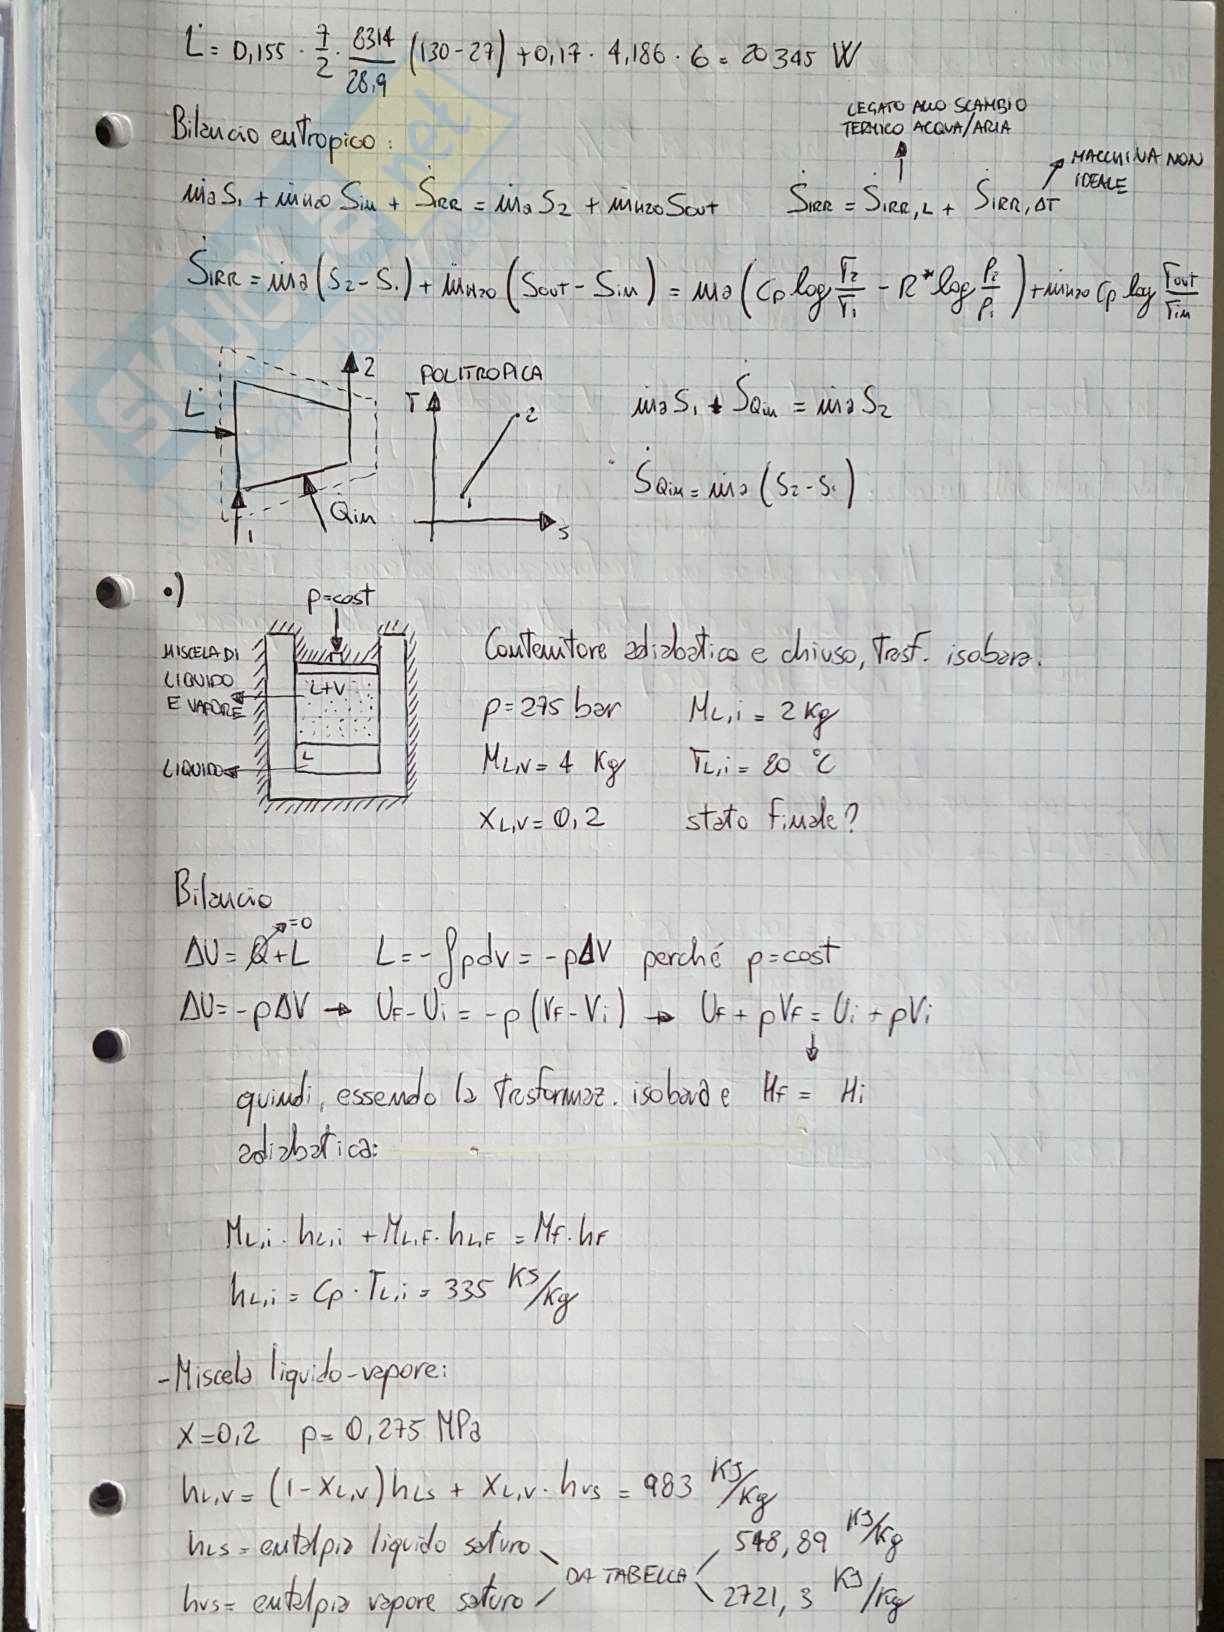 L̇ = 0,155 · 7/2 · 8314/28,9 (130-27) + 0,17 · 4,186 · 6 = 20345 W
LEGATO ALLO SCAMBIO
TERMICO ACQUA/ARIA
Bilancio entropico:
MACCHINA NON
IDEALE
ṁa S1 + ṁH2O Sin + ṠIRR = ṁa S2 + ṁH2O Sout ṠIRR = ṠIRR,L + ṠIRR,ΔT
ṠIRR = ṁa (S2 - S1) + ṁH2O (Sout - Sin) = ṁa (Cp log T2/T1 - R* log P2/P1) + ṁH2O Cp log Tout/Tin
2
POLITROPICA
L̇
T
2
1
S
1
Qin
ṁa S1 + ṠQin = ṁa S2
ṠQin = ṁa (S2 - S1)
•)
p=cost
MISCELA DI
LIQUIDO
E VAPORE
L+V
L
LIQUIDO
Contenitore adiabatico e chiuso, trasf. isobara.
p = 275 bar ML,i = 2 Kg
ML,V = 4 Kg TL,i = 80 °C
XL,V = 0,2 stato finale?
Bilancio
ΔU = Q + L =0 L = -∫pdv = -pΔV perché p=cost
ΔU = -pΔV → UF - Ui = -p (VF - Vi) → UF + pVF = Ui + pVi
quindi, essendo la trasformaz. isobara e HF = Hi
adiabatica:
ML,i · hL,i + ML,F · hL,F = MF · hF
hL,i = Cp · TL,i = 335 KJ/Kg
- Miscela liquido-vapore:
X=0,2 p= 0,275 MPa
hL,V = (1-XL,V) hLS + XL,V · hVS = 983 KJ/Kg
hLS = entalpia liquido saturo
DA TABELLA
548,89 KJ/Kg
hVS = entalpia vapore saturo
2721,3 KJ/Kg